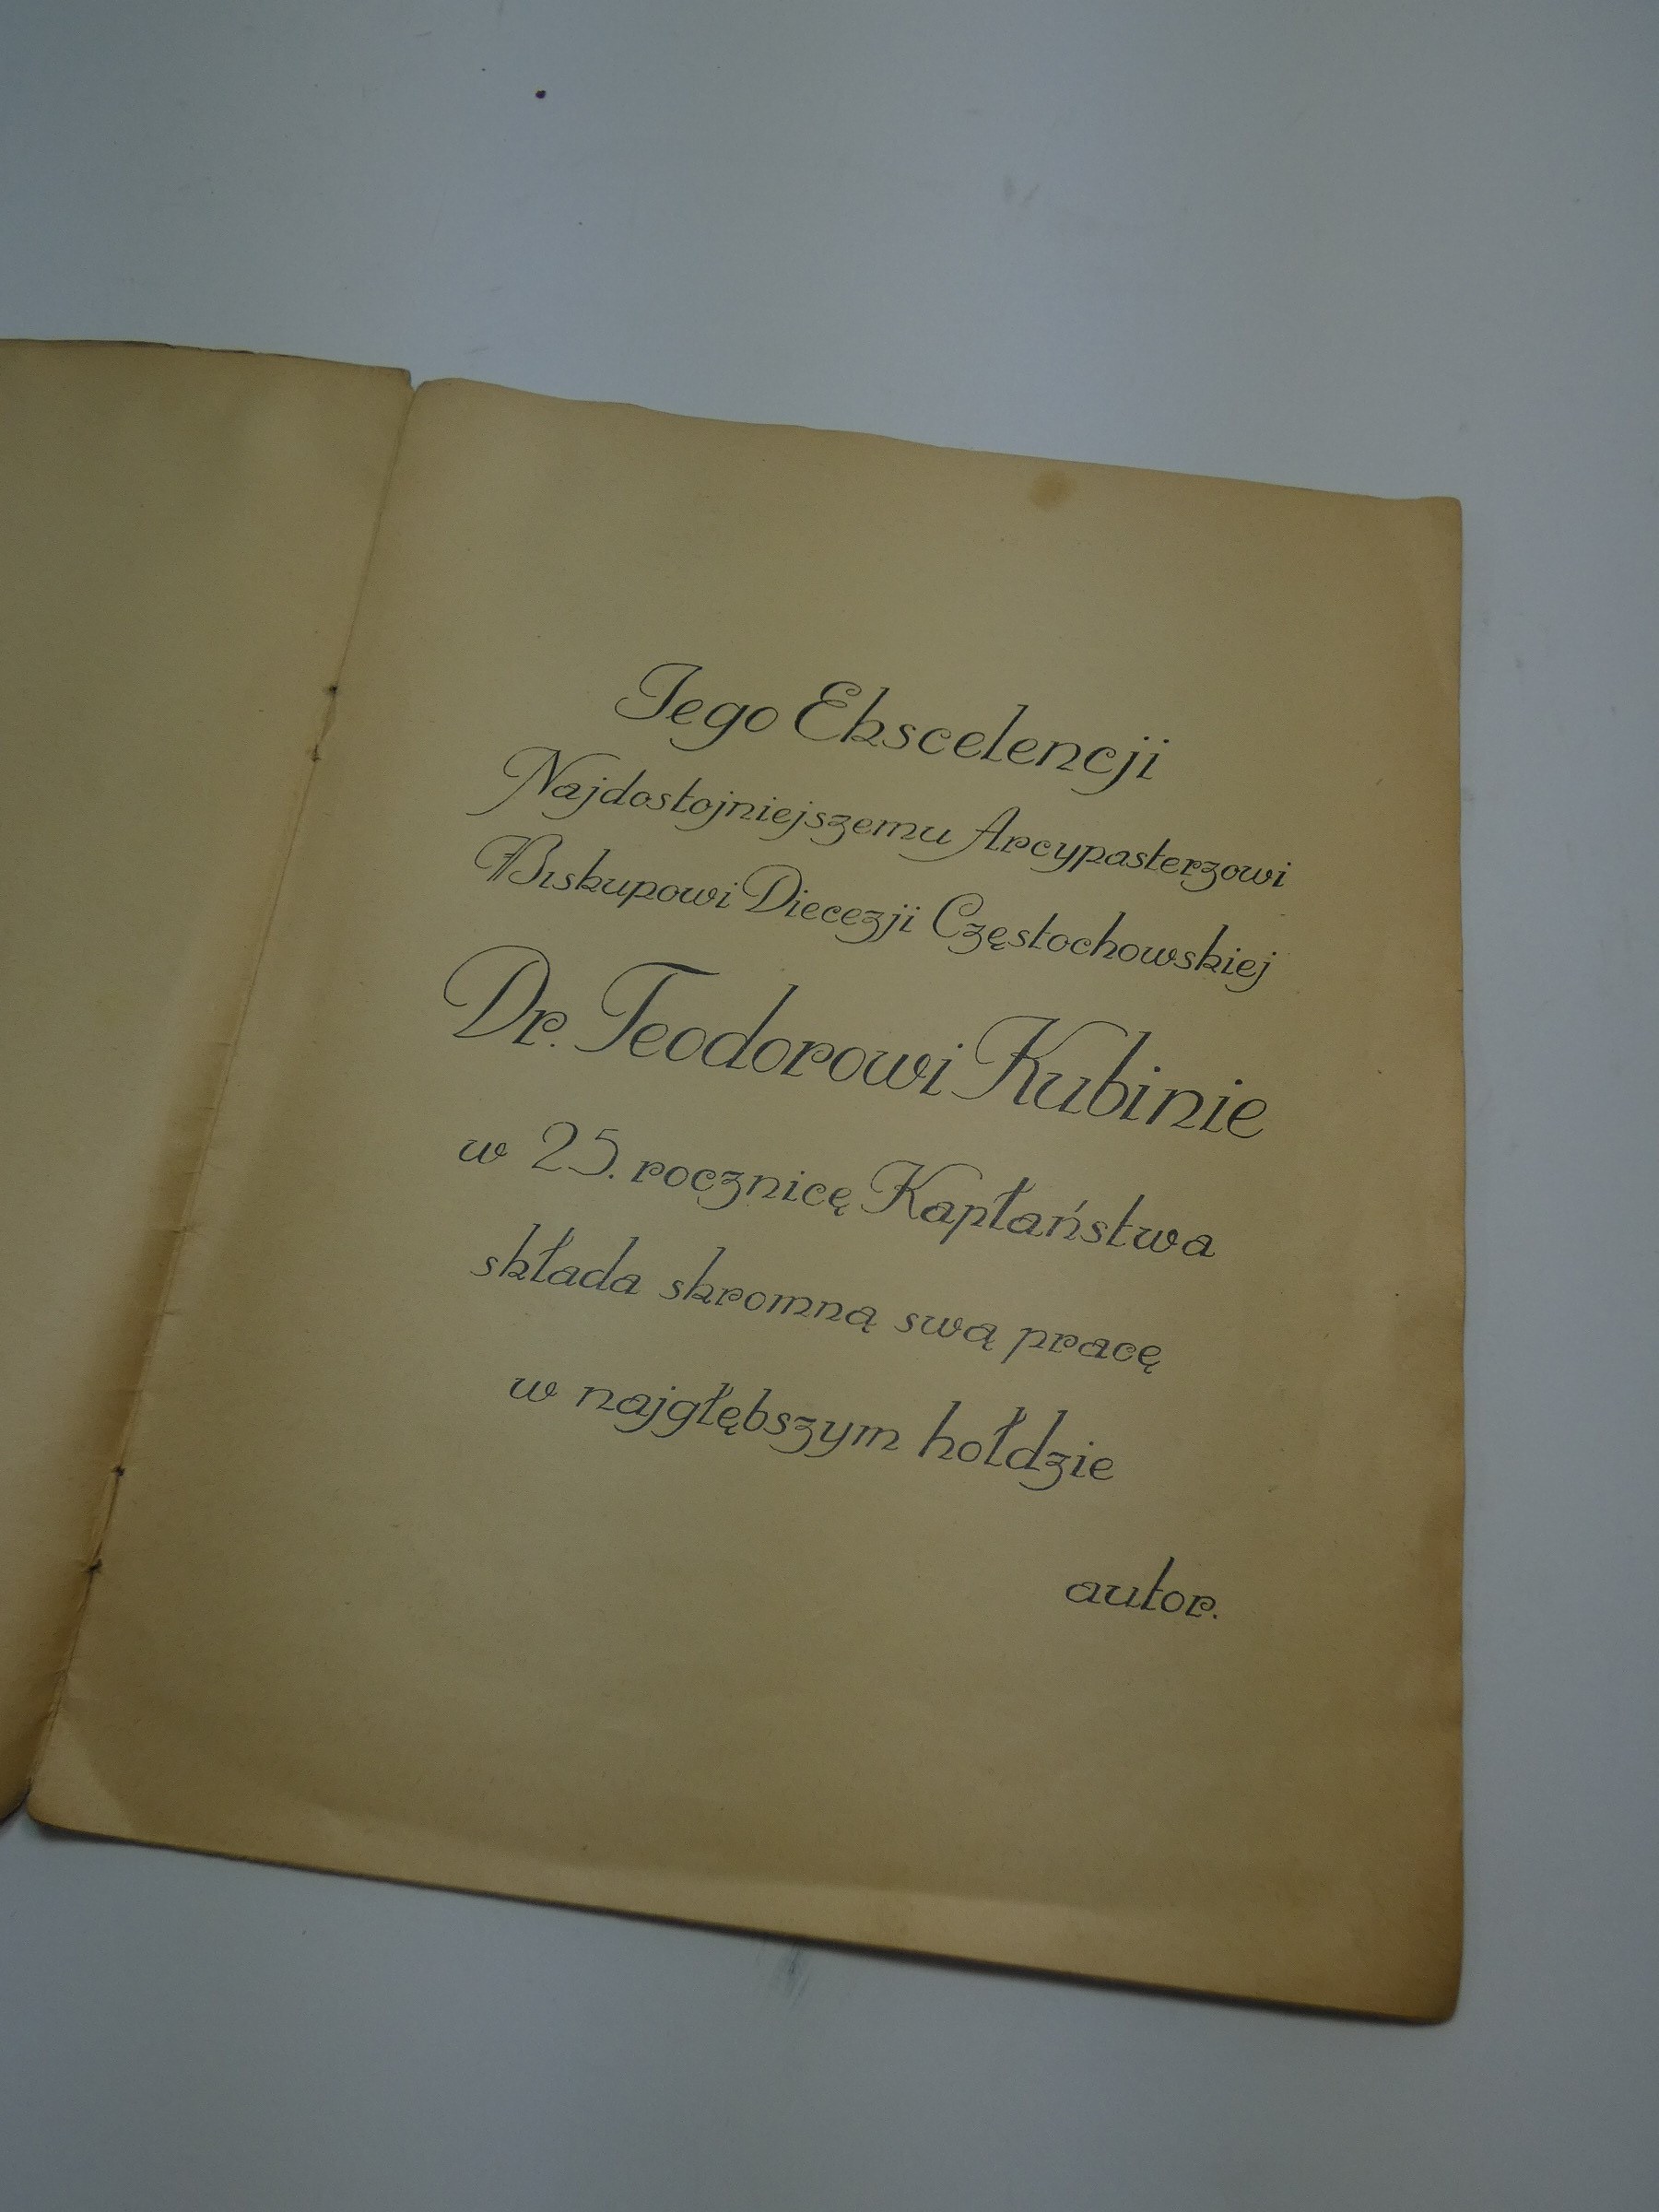 Jego Ekscelencji
Najdostojniejszemu Arcypasterzowi
Biskupowi Diecezji Częstochowskiej
Dr. Teodorowi Kubinie
w 25. rocznicę Kapłaństwa
składa skromną swą pracę
w najgłębszym hołdzie
autor.